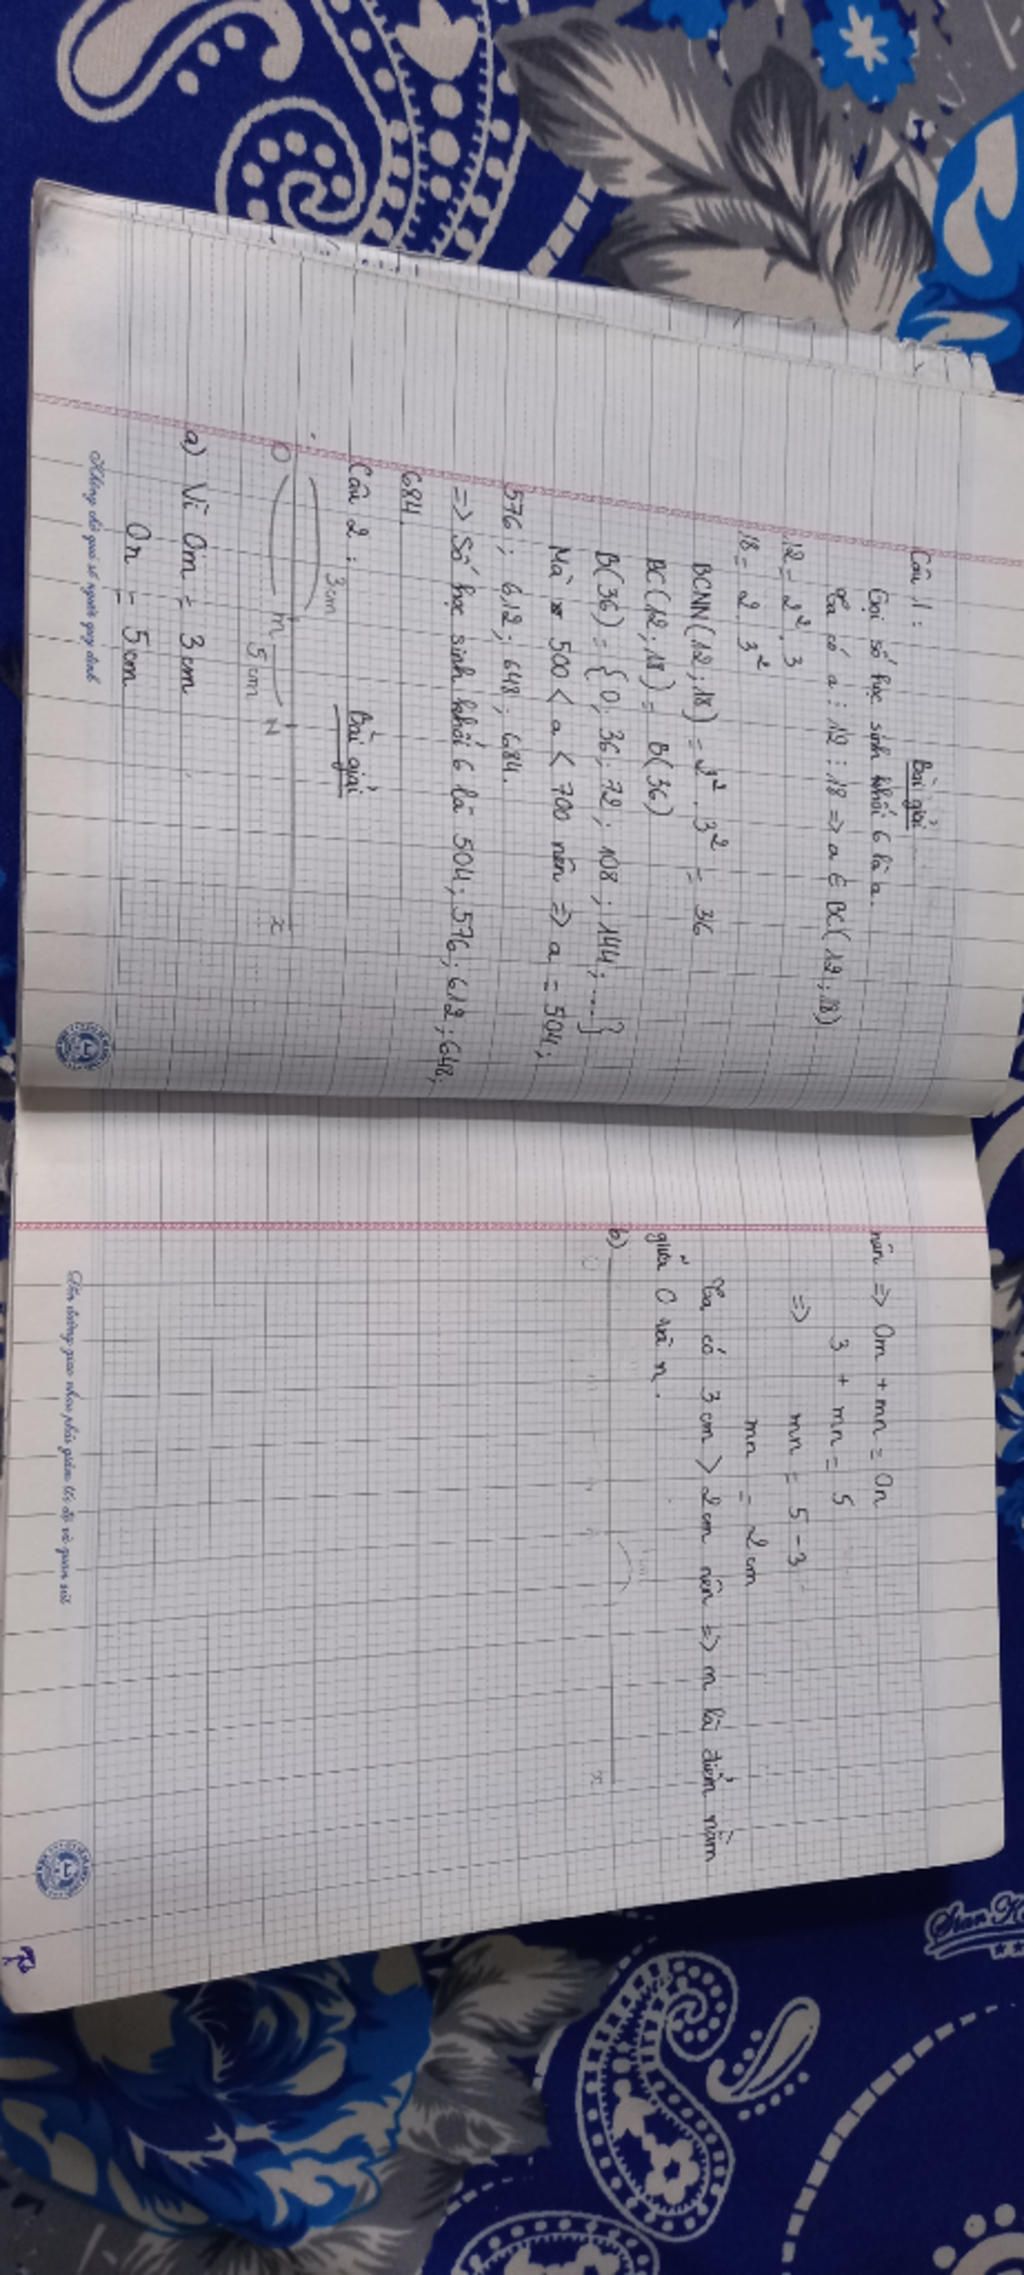 Bài giải
Câu 1 :
Gọi số học sinh khối 6 là a.
Ta có a ⋮ 12 ⋮ 18 => a ∈ BC(12;18)
12 = 2². 3
18 = 2 . 3²
BCNN(12;18) = 2² . 3² = 36
BC(12;18) = B(36)
B(36) = {0; 36; 72; 108; 144; ....}
Mà 500 < a < 700 nên => a = 504;
576; 612; 648; 684.
=> Số học sinh khối 6 là 504; 576; 612; 648;
684.
Bài giải
Câu 2 :
3cm
O m N x
5cm
a) Vì Om = 3cm
On = 5cm
Không chỉ quá số người quy định
nên => Om + mn = On
3 + mn = 5
=> mn = 5 - 3
mn = 2cm
Ta có 3cm > 2cm nên => m là điểm nằm
giữa O và n.
b)
O x
Trên đường giao nhau phải giảm tốc độ và quan sát
Stan